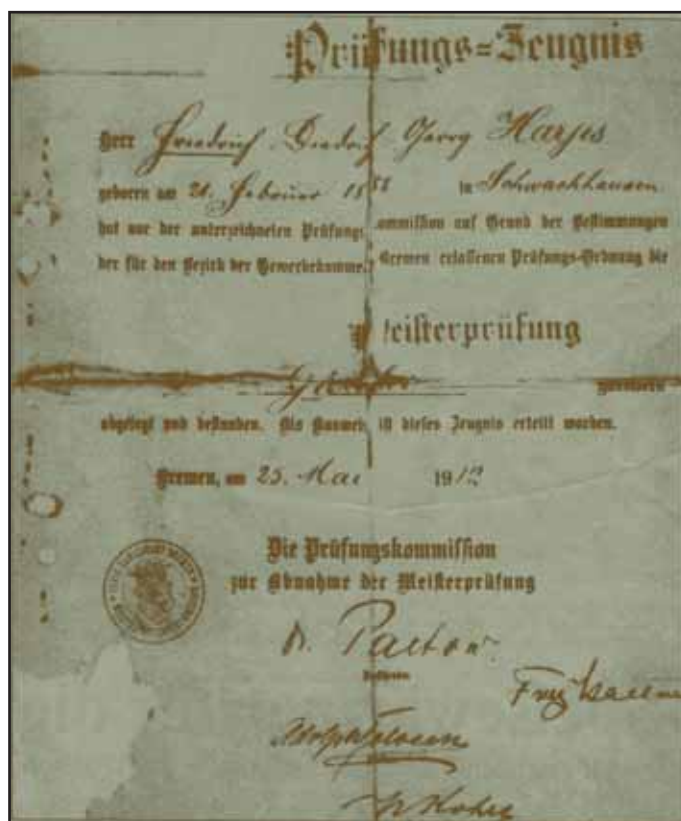 Prüfungs=Zeugnis
Herr Friedrich Diedrich Georg Harjes
geboren am 21. Februar 1888 in Schwachhausen
hat vor der unterzeichneten Prüfungskommission auf Grund der Bestimmungen
der für den Bezirk der Gewerbekammer Bremen erlassenen Prüfungs-Ordnung die
Meisterprüfung
abgelegt und bestanden. Als Ausweis ist dieses Zeugnis erteilt worden.
Bremen, am 25. Mai 1912
Die Prüfungskommission
zur Abnahme der Meisterprüfung